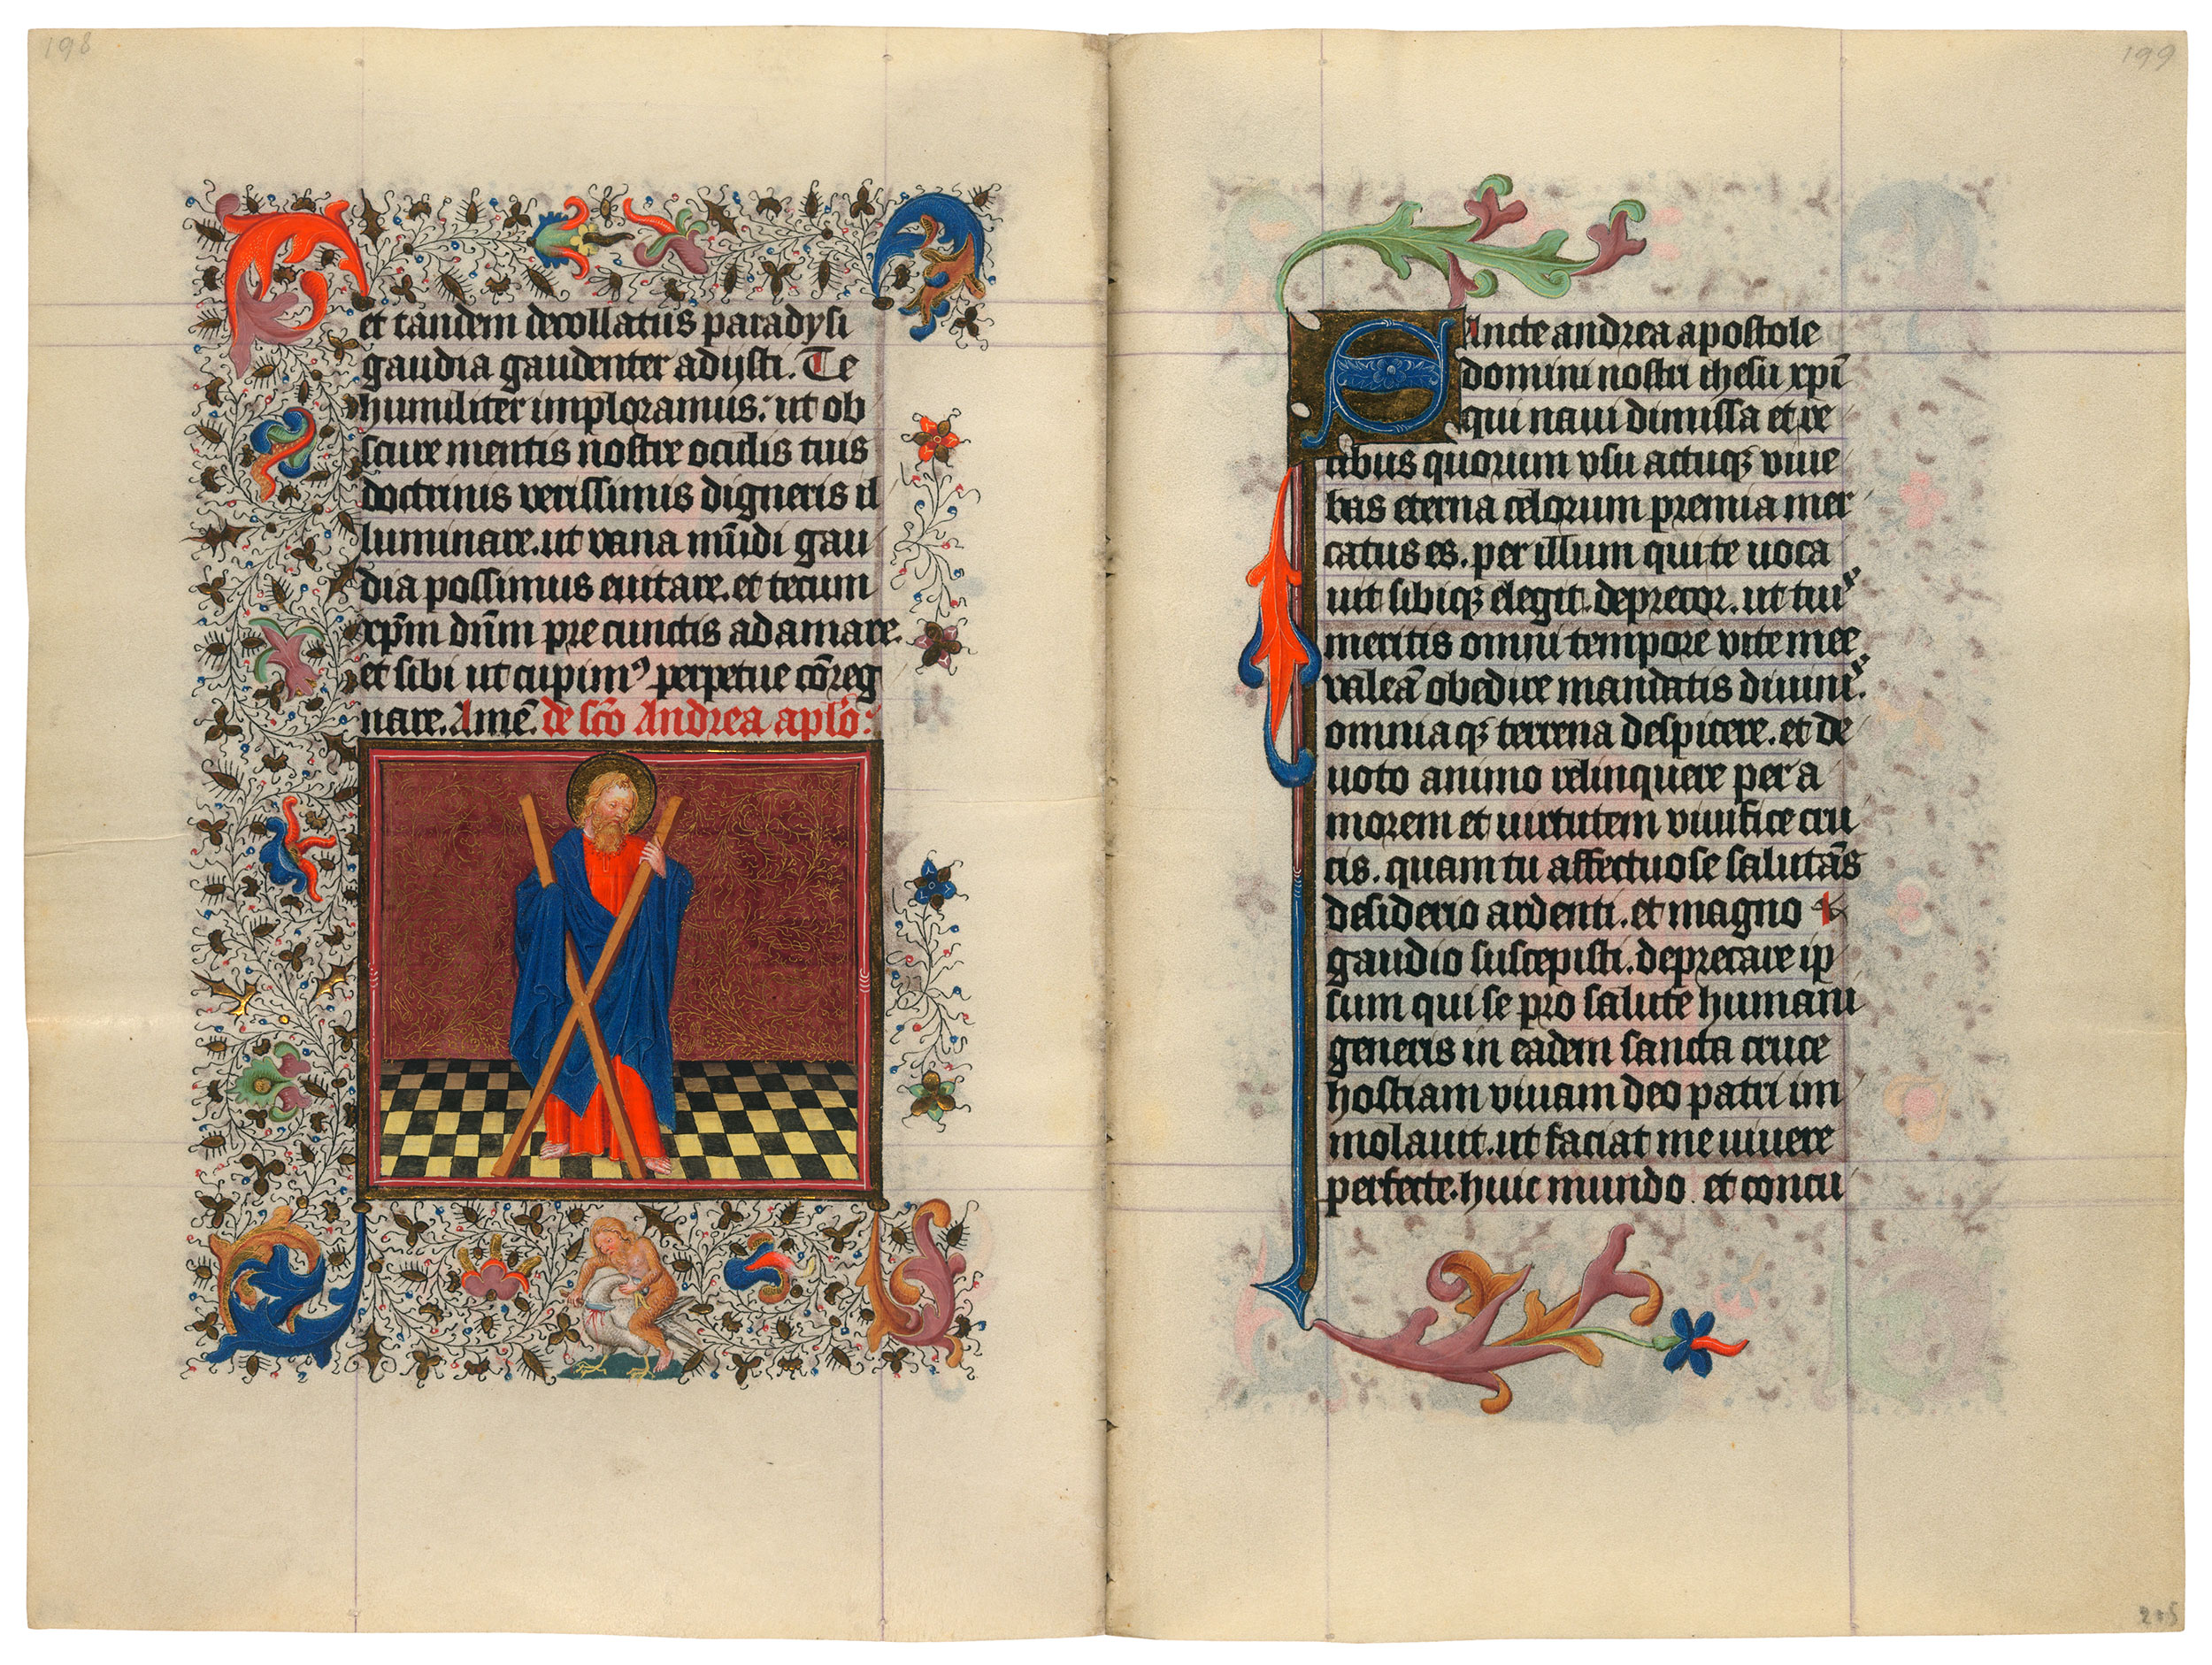 198
et tandem decollatus paradysi
gaudia gaudenter adijsti. Te
humiliter imploramus. ut ob
scure mentis nostre oculis tuis
doctrinis verissimis digneris il
luminare. ut vana mūdi gau
dia possimus euitare. et tecum
xp̄m dn̄m pre cunctis adamare.
et sibi ut cupimꝰ perpetue cōreg
nare. Amē. de sc̄o Andrea aplo:
199
SAncte andrea apostole
domini nostri ihesu xp̄i
qui naui dimissa et re
tibus quorum vsu actuqꝫ viue
bas eterna celorum premia mer
catus es. per illum qui te uoca
uit sibiqꝫ elegit. deprecor. ut tuis
meritis omni tempore vite mee
valeā obedire mandatis diuinis.
omniaqꝫ terrena despicere. et de
uoto animo relinquere per a
morem et uirtutem viuifice cru
cis. quam tu affectuose salutās
desiderio ardenti. et magno
gaudio suscepisti. deprecare ip
sum qui se pro salute humani
generis in eadem sancta cruce
hostiam viuam deo patri im
molauit. ut faciat me uiuere
perfecte. huic mundo et concu
215